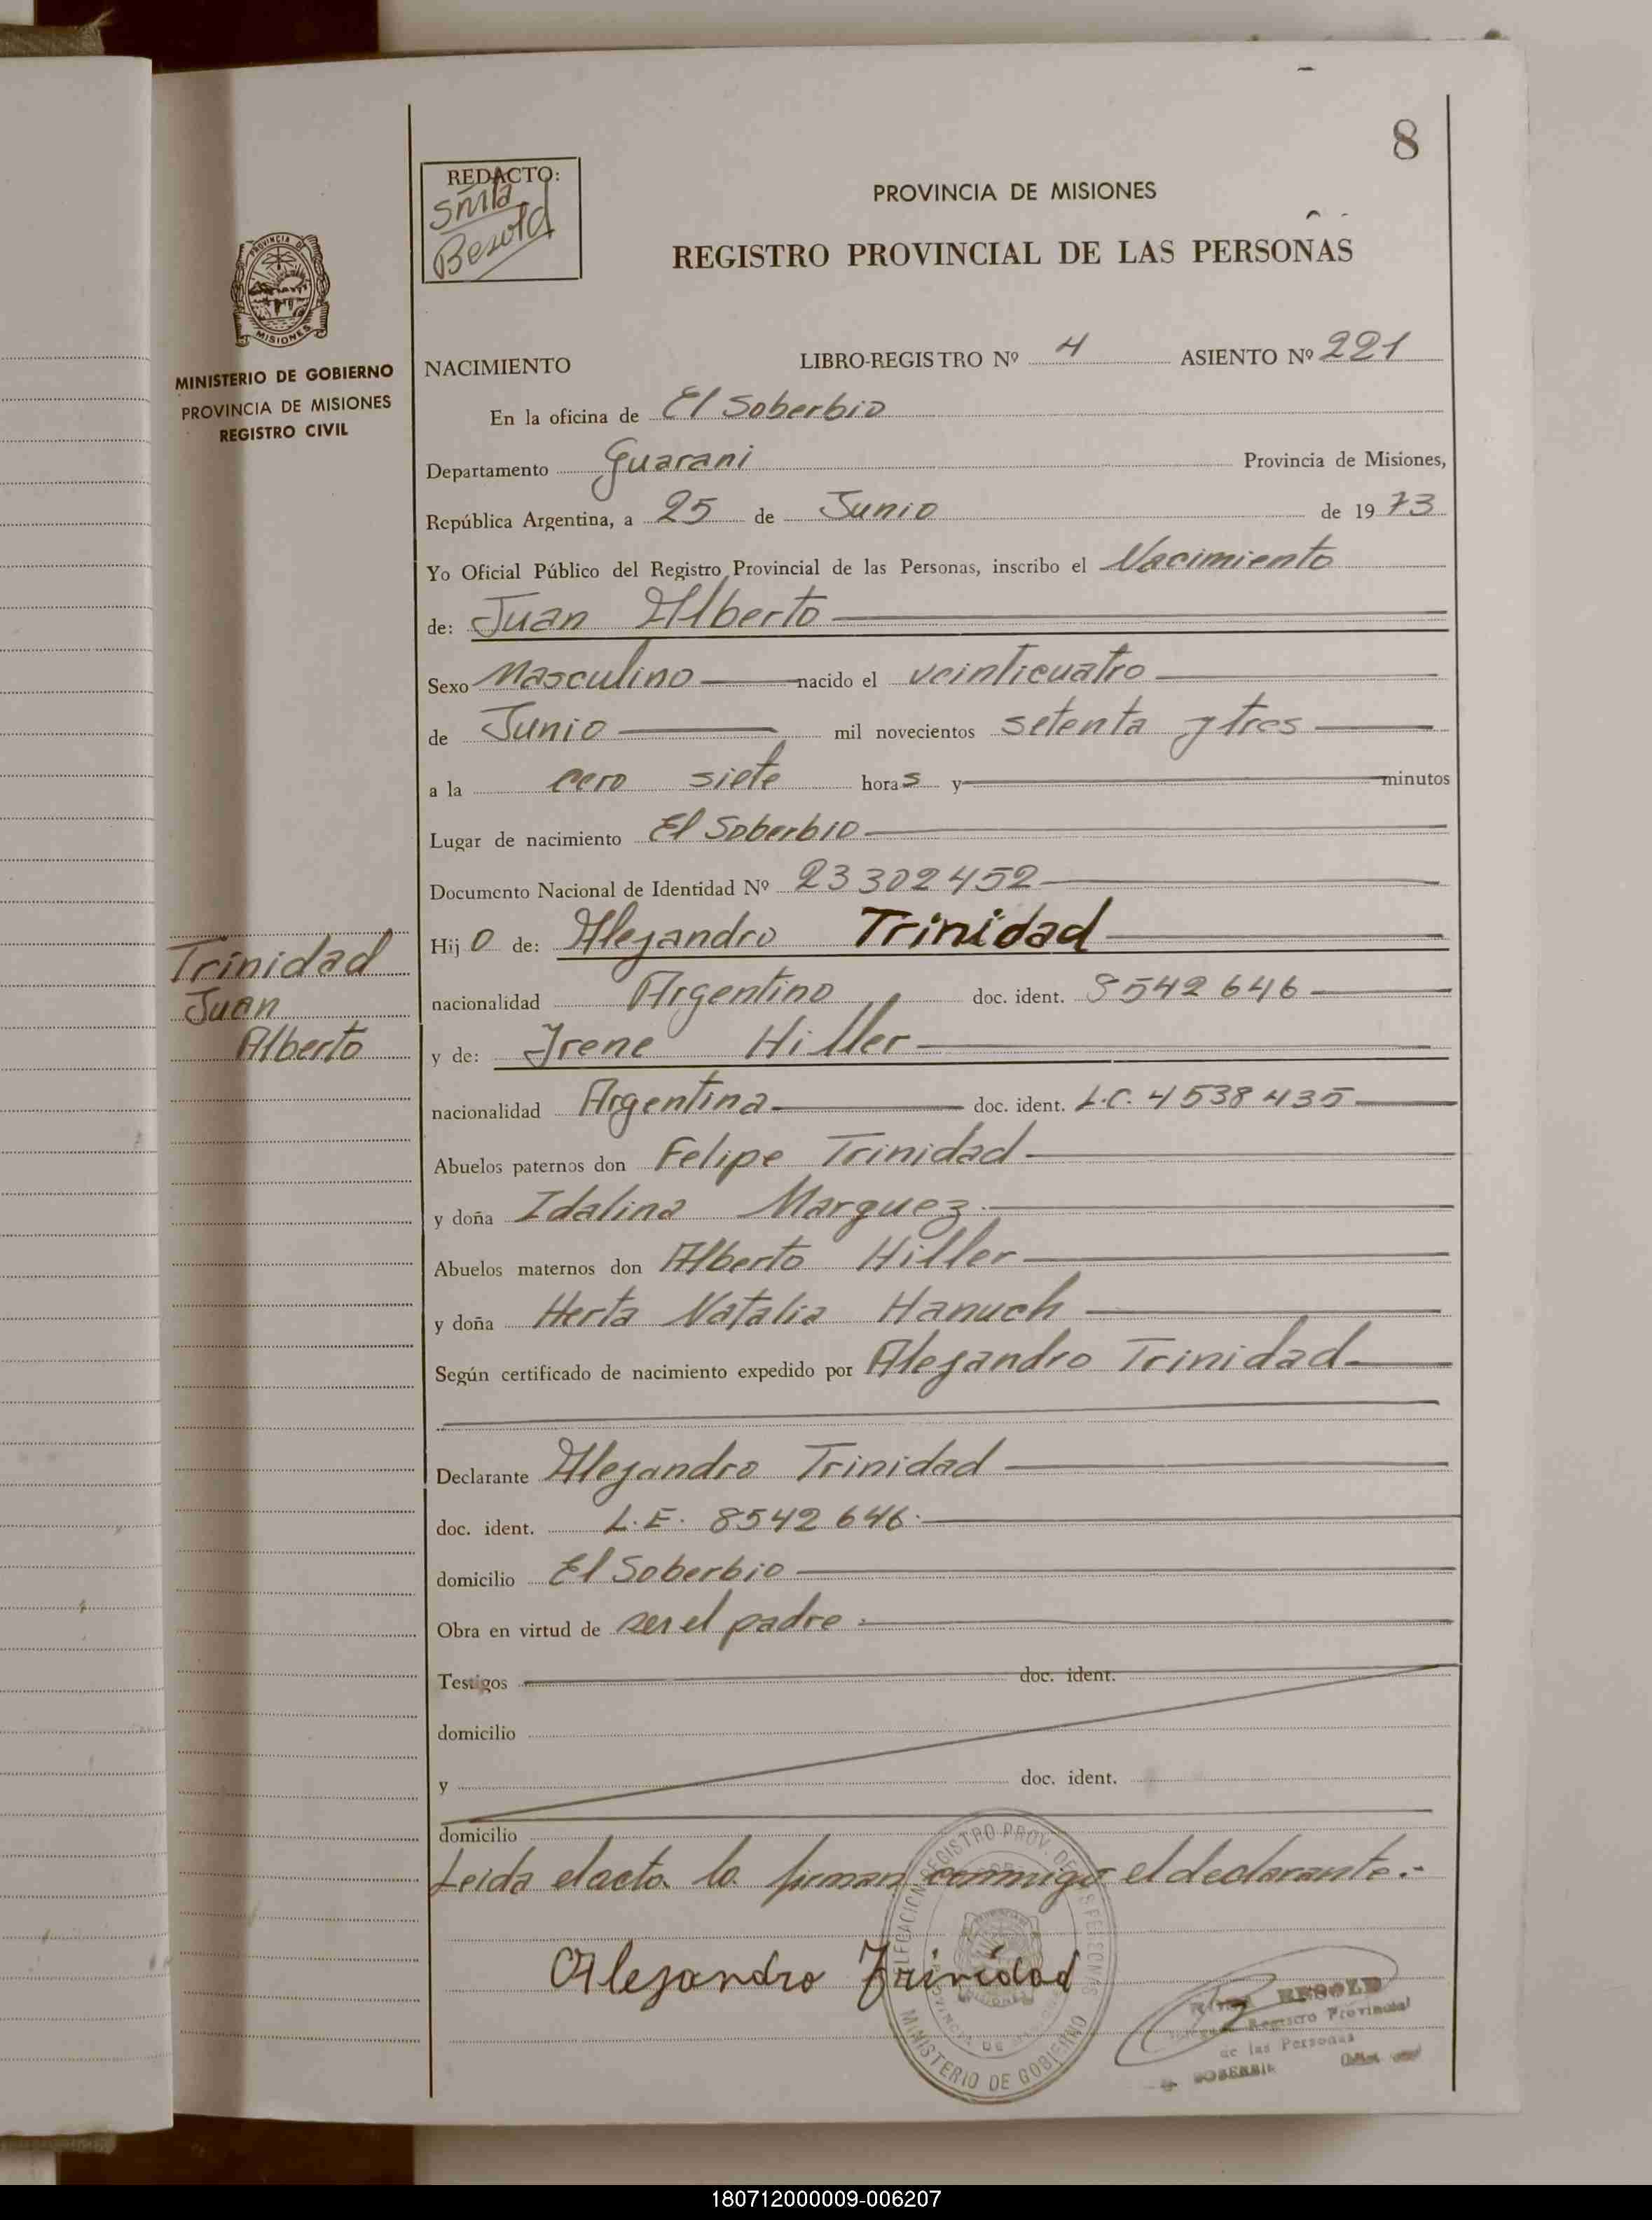 8
REDACTO:
Besold
PROVINCIA DE MISIONES
REGISTRO PROVINCIAL DE LAS PERSONAS
PROVINCIA DE
MISIONES
MINISTERIO DE GOBIERNO
PROVINCIA DE MISIONES
REGISTRO CIVIL
NACIMIENTO LIBRO-REGISTRO Nº 4 ASIENTO Nº 221
En la oficina de El Soberbio
Departamento Guarani Provincia de Misiones,
República Argentina, a 25 de Junio de 1973
Yo Oficial Público del Registro Provincial de las Personas, inscribo el Nacimiento
de: Juan Alberto
Sexo Masculino nacido el veinticuatro
de Junio mil novecientos setenta y tres
a la cero siete horas y minutos
Lugar de nacimiento El Soberbio
Documento Nacional de Identidad Nº 23302452
Hijo de: Alejandro Trinidad
nacionalidad Argentino doc. ident. 8542646
y de: Irene Hiller
nacionalidad Argentina doc. ident. L.C. 4538435
Abuelos paternos don Felipe Trinidad
y doña Idalina Marquez
Abuelos maternos don Alberto Hiller
y doña Herta Natalia Hanuch
Según certificado de nacimiento expedido por Alejandro Trinidad
Declarante Alejandro Trinidad
doc. ident. L.E. 8542646
domicilio El Soberbio
Obra en virtud de ser el padre
Testigos doc. ident.
domicilio
y doc. ident.
domicilio
Leida el acta la firman conmigo el declarante.-
Alejandro Trinidad
Trinidad
Juan
Alberto
DELEGACION REGISTRO PROV. DE LAS PERSONAS
PROVINCIA DE MISIONES
MINISTERIO DE GOBIERNO
BESOLD
Registro Provincial
de las Personas
SOBERBIO
180712000009-006207